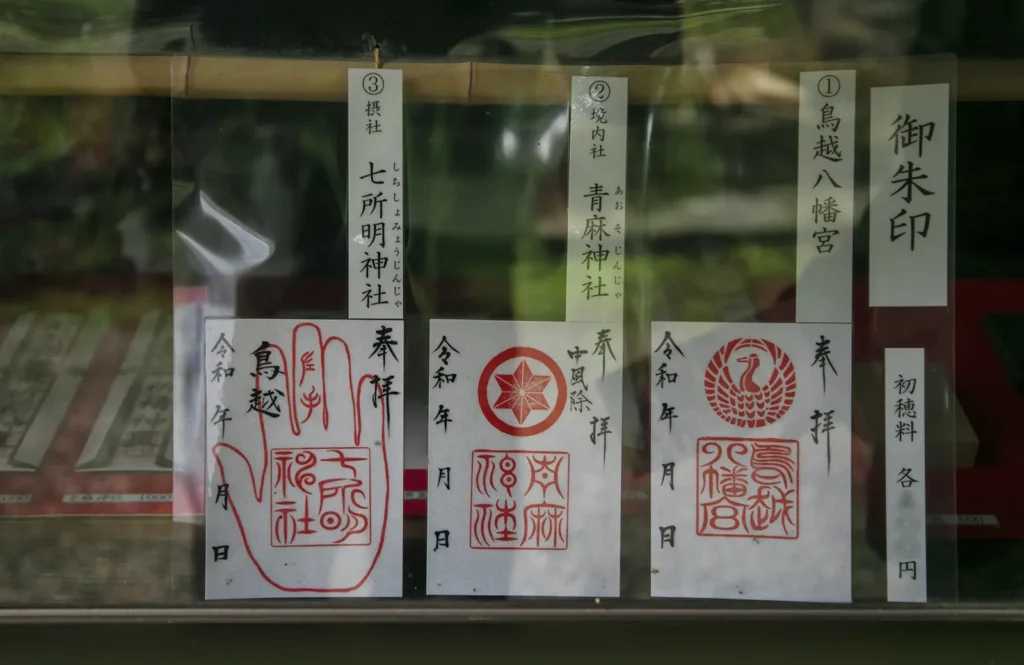 御朱印
初穂料 各 円
①鳥越八幡宮
奉拝
鳥越
八幡宮
令和 年 月 日
②境内社 青麻神社
あおそじんじゃ
奉拝
中風除
青麻
神社
令和 年 月 日
③摂社 七所明神社
しちしょみょうじんじゃ
奉拝
七所明
神社
鳥越
令和 年 月 日
1000